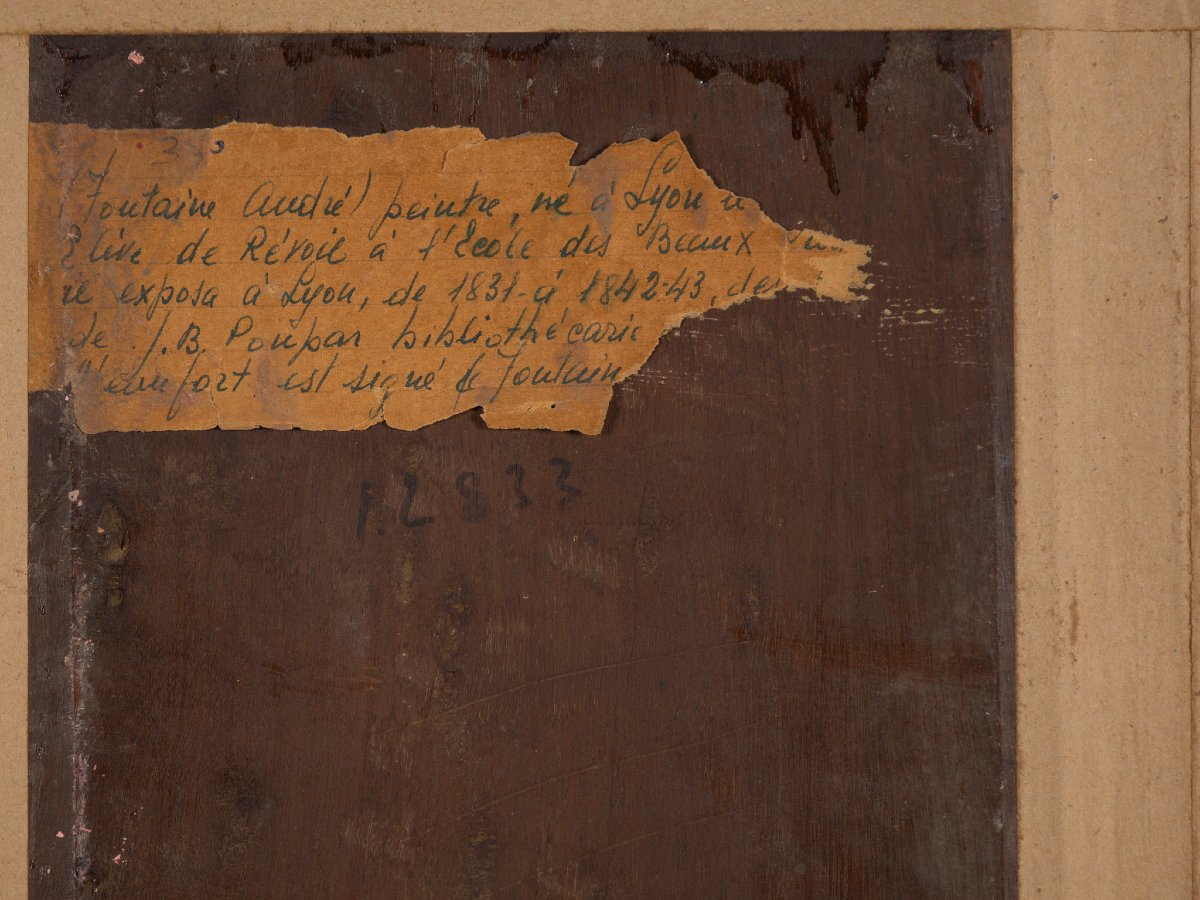 3
(Fontaine André) peintre, né à Lyon
Elève de Révoil à l'Ecole des Beaux
exposa à Lyon, de 1831 à 1842-43, de
de J.B. Poupar bibliothécarie
est signé Fontain
P.2833